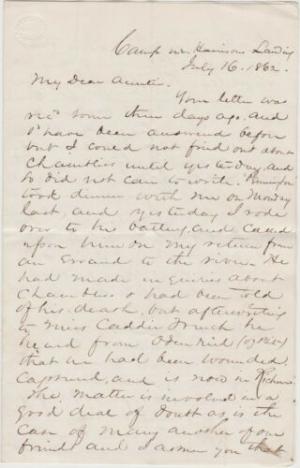 Camp nr. Harrisons Landing
July 16. 1862.
My Dear Auntie.
Your letter was
rec'd some three days ago, and
have been answered before
but I could not find out about
Chambliss until yesterday, and
so did not care to write.
took dinner with me on Monday
last, and yesterday I rode
over to his battery, and called
upon him on my return from
an errand to the river. He
had made inquiries about
Chambliss & had been told
of his death, but after writing
to Miss Caddie he
heard from
that he had been wounded,
captured, and is now in Richmond
The matter is involved in a
good deal of doubt as is the
case of many another of our
friends and I assure you that